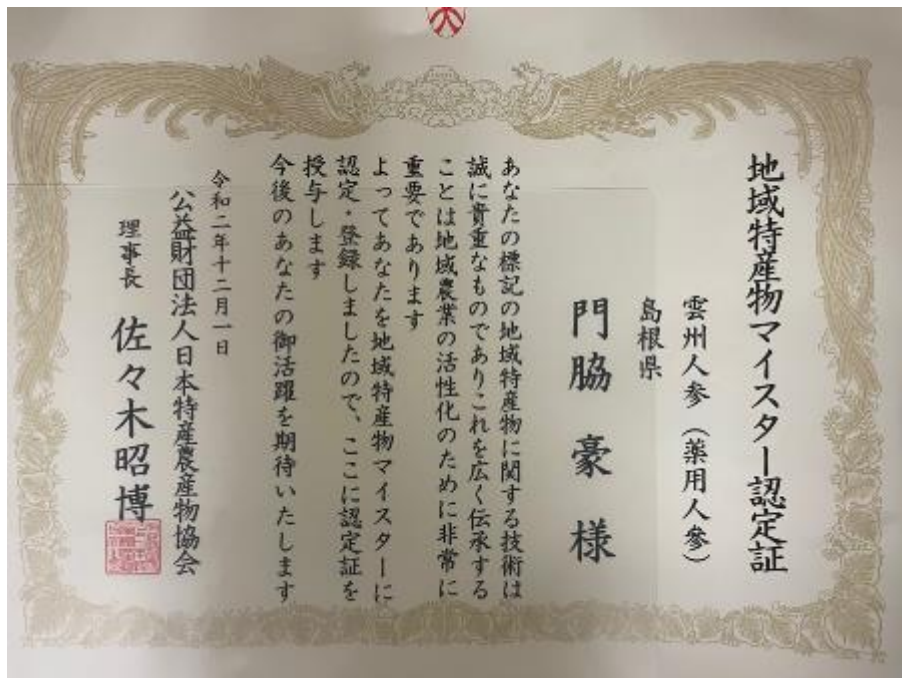 地域特産物マイスター認定証
雲州人参（薬用人参）
島根県
門脇 豪 様
あなたの標記の地域特産物に関する技術は
誠に貴重なものでありこれを広く伝承する
ことは地域農業の活性化のために非常に
重要であります
よってあなたを地域特産物マイスターに
認定・登録しましたので、ここに認定証を
授与します
今後のあなたの御活躍を期待いたします
令和二年十二月一日
公益財団法人日本特産農産物協会
理事長 佐々木昭博